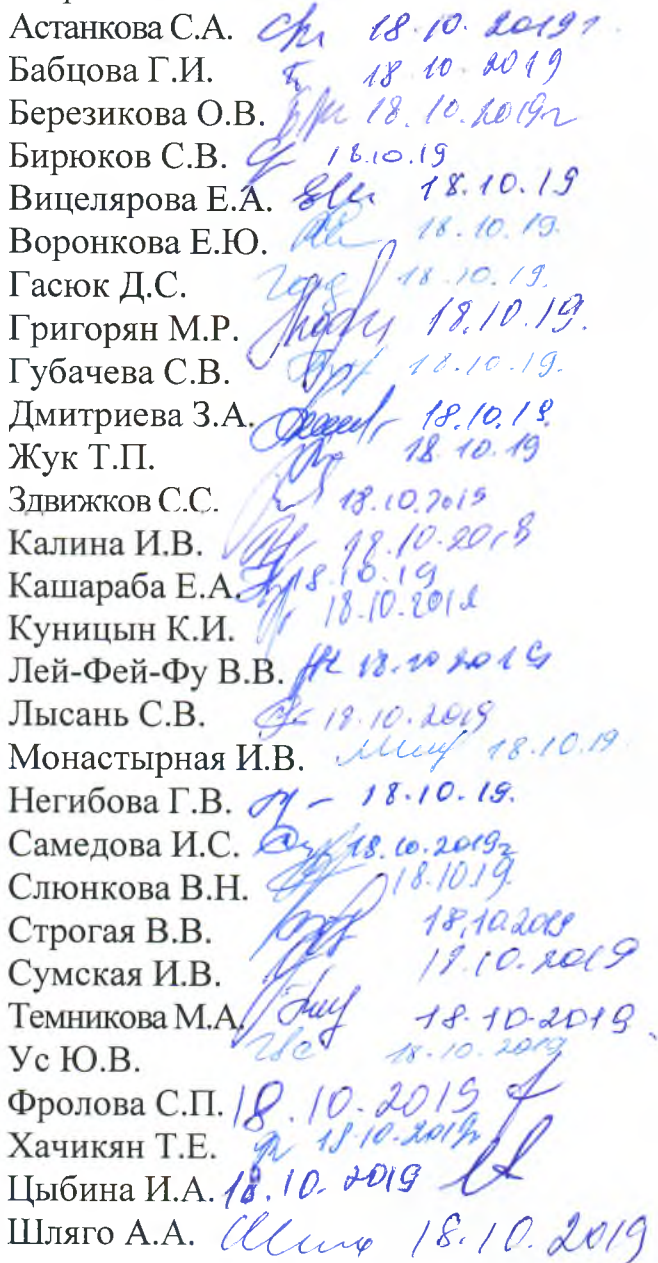 Астанкова С.А. 18.10.2019г
Бабцова Г.И. 18 10 2019
Березикова О.В. 18.10.2019г
Бирюков С.В. 18.10.19
Вицелярова Е.А. 18.10.19
Воронкова Е.Ю. 18.10.19.
Гасюк Д.С. 18.10.19.
Григорян М.Р. 18.10.19.
Губачева С.В. 18.10.19.
Дмитриева З.А. 18.10.19.
Жук Т.П. 18.10.19
Здвижков С.С. 18.10.2019
Калина И.В. 18.10.2019
Кашараба Е.А. 18.10.19
Куницын К.И. 18.10.2019
Лей-Фей-Фу В.В. 18.10 2019
Лысань С.В. 18.10.2019
Монастырная И.В. 18.10.19
Негибова Г.В. 18.10.19.
Самедова И.С. 18.10.2019г
Слюнкова В.Н. 18.10.19.
Строгая В.В. 18.10.2019
Сумская И.В. 18.10.2019
Темникова М.А. 18.10.2019.
Ус Ю.В. Ус 18.10.2019
Фролова С.П. 18.10.2019
Хачикян Т.Е. 18.10.2019г
Цыбина И.А. 18.10.2019
Шляго А.А. 18.10.2019